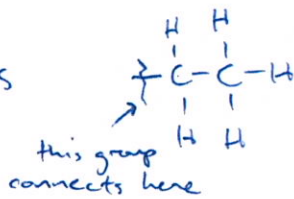 H H
s
C-C-H
H H
this group
connects here